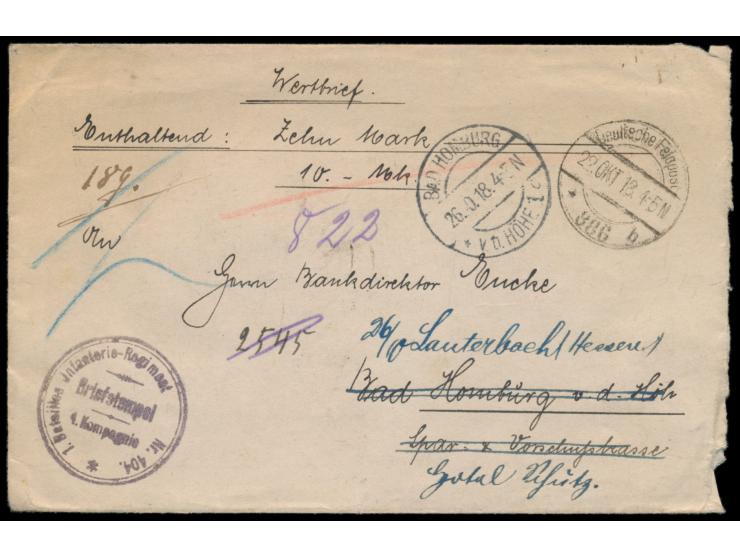 Wertbrief.
Enthaltend: Zehn Mark
10.- Mk.
189.
BAD HOMBURG
26.10.18.4-5N
* v.d. HÖHE 1
Deutsche Feldpost
22.OKT 18.4-5N
* 986 b
822
An
Herrn Bankdirektor Encke
2545
26/ Lauterbach Hessen 1
Bad Homburg v. d. Höh
Spar- & Vorschußkasse
Hotel Schütz.
1. Bataillon Infanterie-Regiment Nr. 404. *
Briefstempel
4. Kompagnie